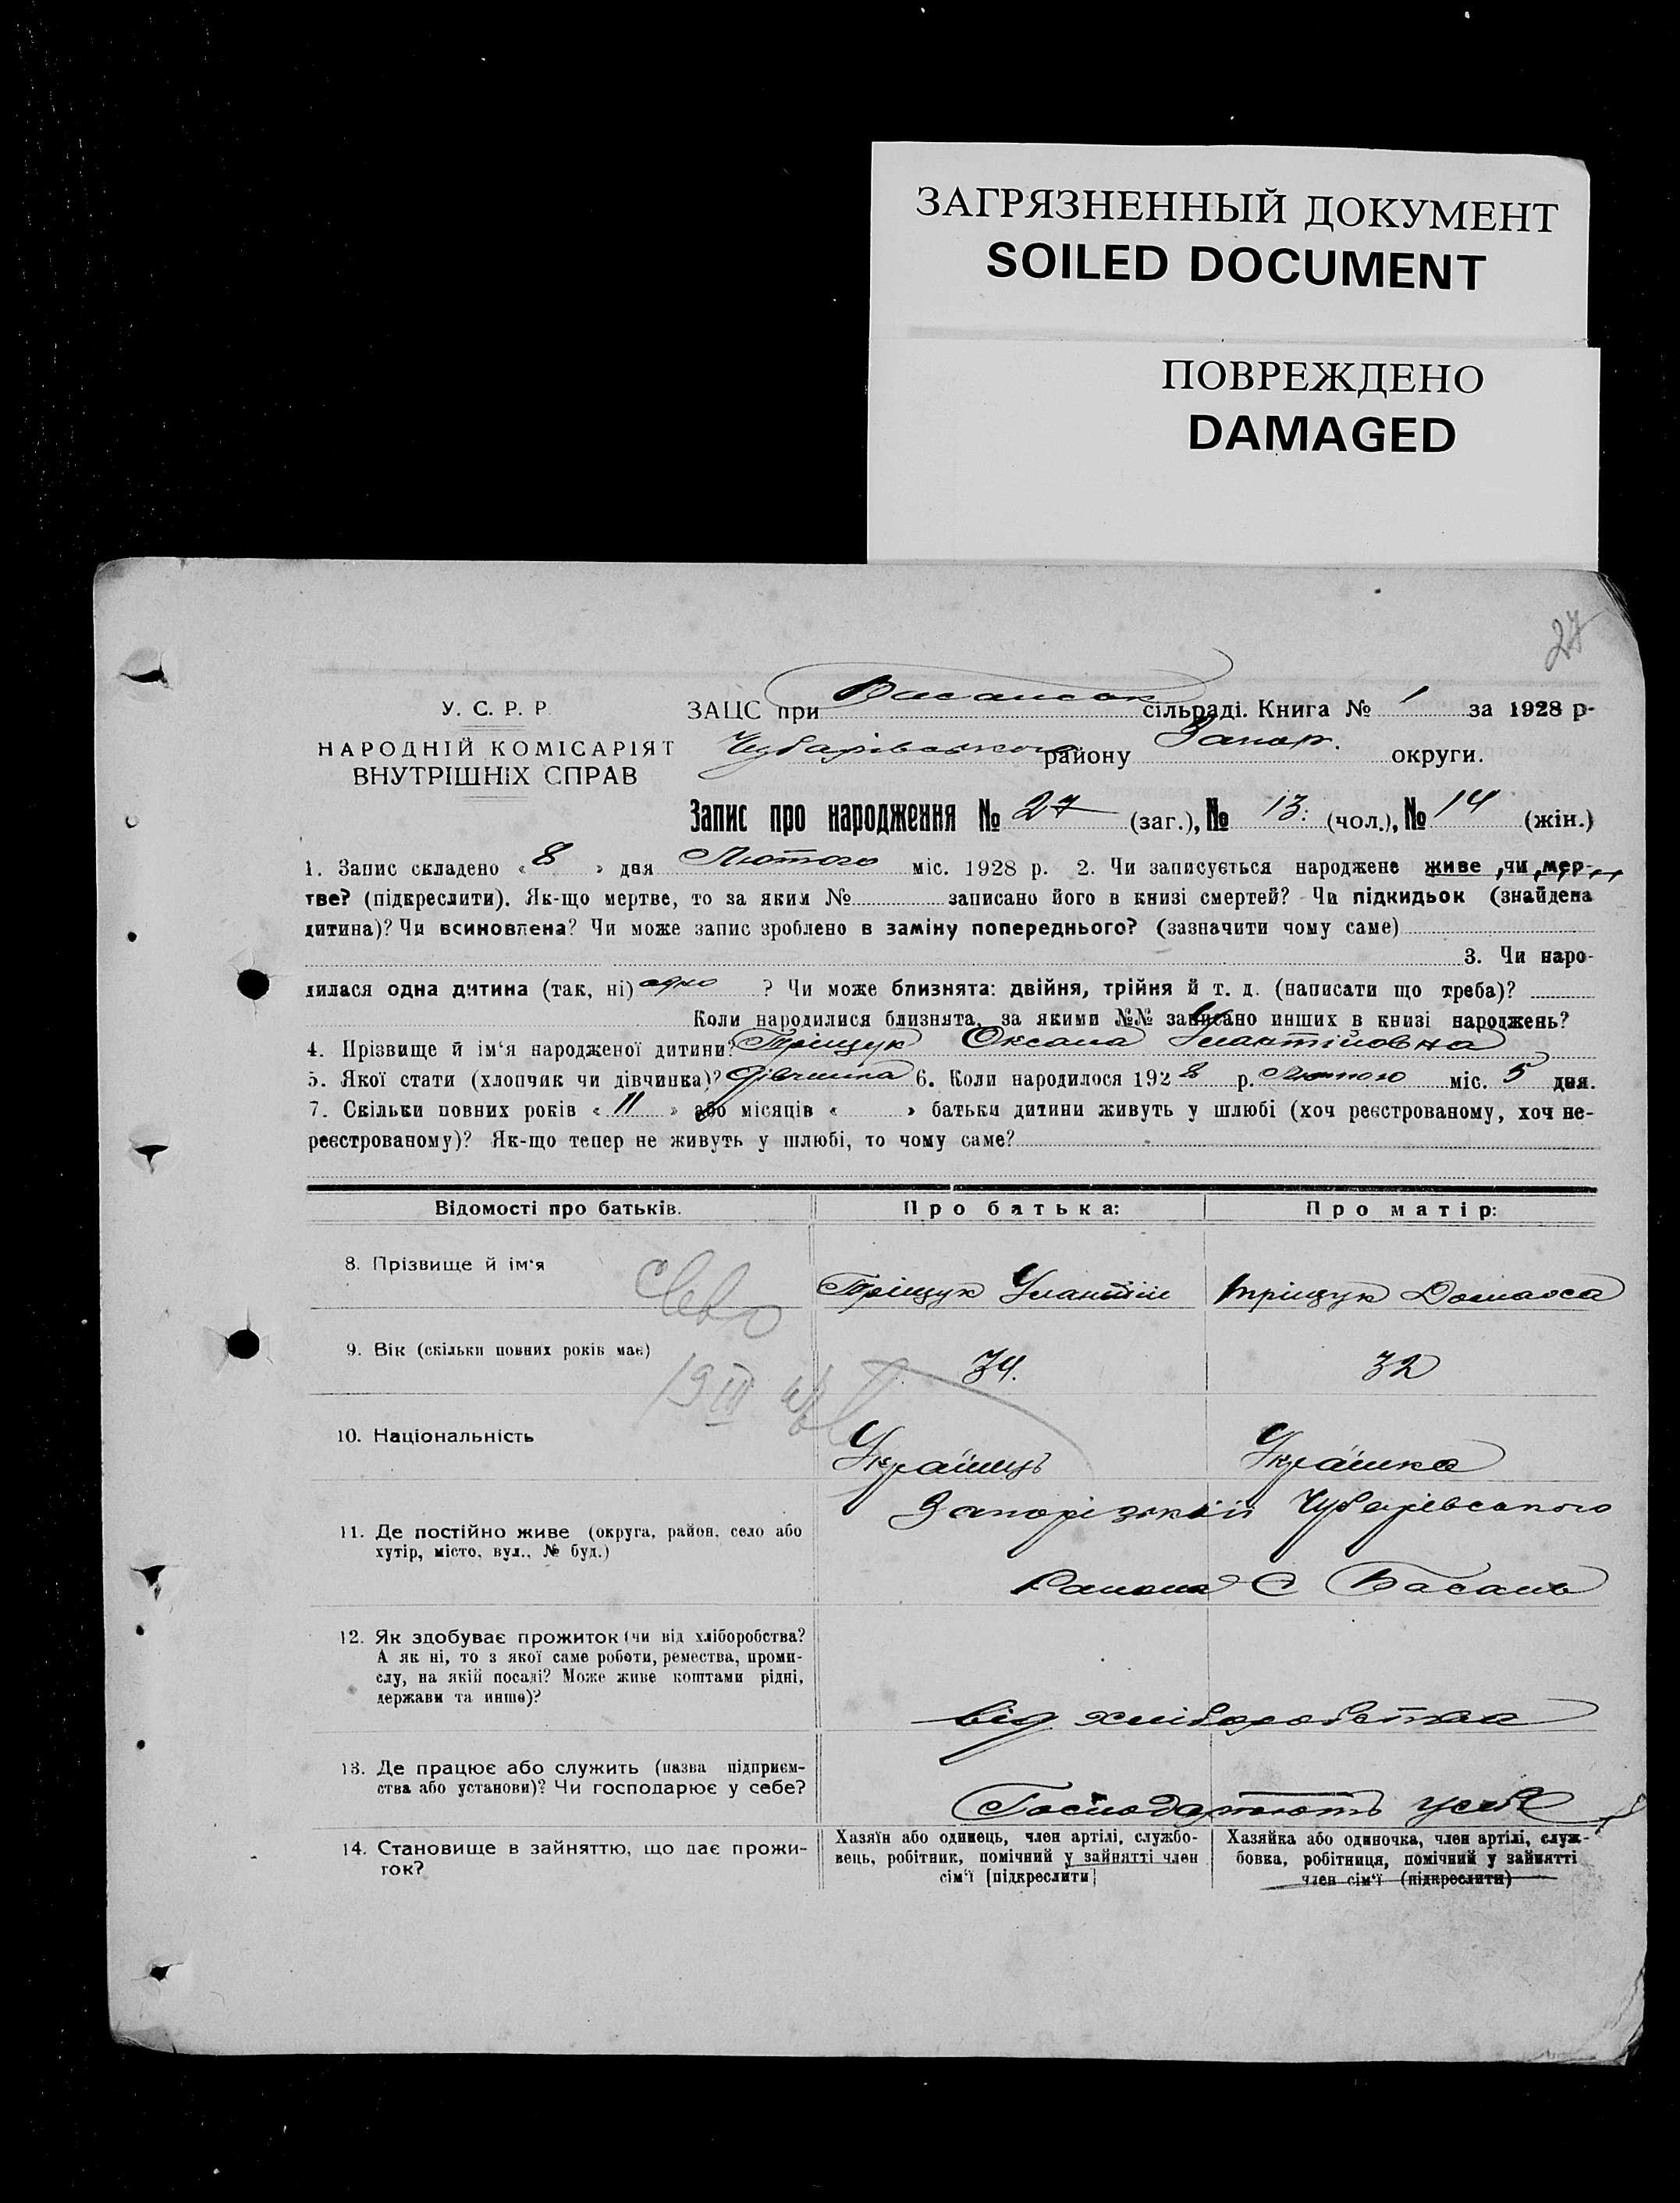 ЗАГРЯЗНЕННЫЙ ДОКУМЕНТ
SOILED DOCUMENT
ПОВРЕЖДЕНО
DAMAGED
27
У. С. Р. Р.
НАРОДНІЙ КОМІСАРІЯТ
ВНУТРІШНІХ СПРАВ
ЗАЦС при Басанськ сільраді. Книга № 1 за 1928 р-
Чубарівського району Запор. округи.
Запис про народження № 27 (заг.), № 13: (чол.), № 14 (жін.)
1. Запис складено « 8 » дня Лютого міс. 1928 р. 2. Чи записується народжене живе, чи мер-
тве? (підкреслити). Як-що мертве, то за яким № записано його в книзі смертей? Чи підкидьок (знайдена
дитина)? Чи всиновлена? Чи може запис зроблено в заміну попереднього? (зазначити чому саме)
3. Чи наро-
дилася одна дитина (так, ні) одно ? Чи може близнята: двійня, трійня й т. д. (написати що треба)?
Коли народилися близнята, за якими №№ записано инших в книзі народжень?
4. Прізвище й ім'я народженої дитини? Гріщук Оксана
5. Якої стати (хлопчик чи дівчинка)? Дівчинка 6. Коли народилося 1928 р. Лютого міс. 5 дня.
7. Скільки повних років « 11 » або місяців « » батьки дитини живуть у шлюбі (хоч реєстрованому, хоч не-
реєстрованому)? Як-що тепер не живуть у шлюбі, то чому саме?
Відомості про батьків. Про батька: Про матір:
8. Прізвище й ім'я Гріщук Гріщук
9. Вік (скільки повних років має) 34. 32
10. Національність Українць Українка
11. Де постійно живе (округа, район, село або
хутір, місто, вул., № буд.)
Запорізькій Чубарівського
Района С Басань
12. Як здобуває прожиток (чи від хліборобства?
А як ні, то з якої саме роботи, ремества, проми-
слу, на якій посаді? Може живе коштами рідні,
держави та инше)?
від хліборобства
13. Де працює або служить (назва підприєм-
ства або установи)? Чи господарює у себе?
Господарюють усебе
14. Становище в зайняттю, що дає прожи-
ток?
Хазяїн або одинець, член артілі, службо-
вець, робітник, помічний у зайнятті член
сім'ї [підкреслити]
Хазяйка або одиночка, член артілі, служ-
бовка, робітниця, помічний у зайнятті
член сім'ї (підкреслити)